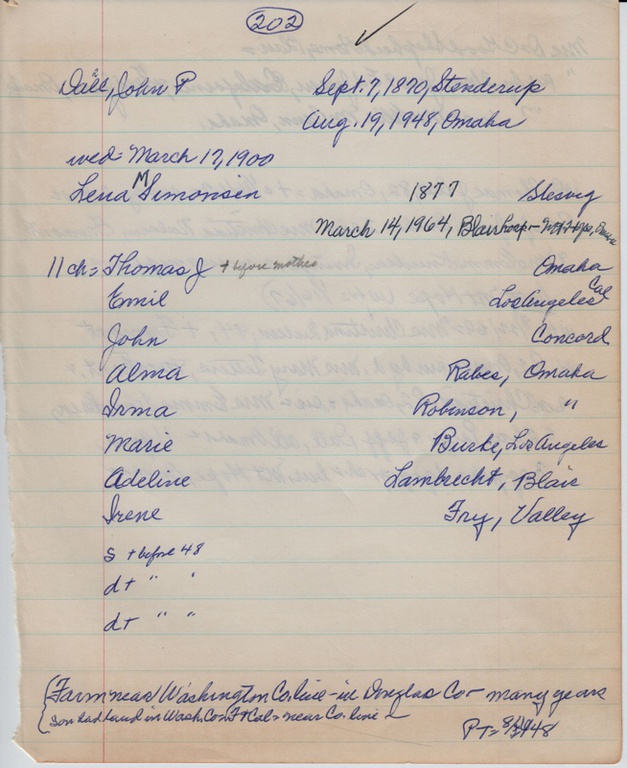 202
Dall, John P Sept. 7, 1870, Stenderup
Aug. 19, 1948, Omaha
wed= March 17, 1900
Lena M Simonsen 1877 Slesvig
March 14, 1964, Blair hosp -
11 ch = Thomas J + before mother Omaha
Emil Los Angeles Cal
John Concord
Alma Rabes, Omaha
Irma Robinson, "
Marie Burke, Los Angeles
Adeline Lambrecht, Blair
Irene Fry, Valley
s + before 48
d + " "
d + " "
Farm near Washington Co. line - in Douglas Co - many years
Son had land in Wash. Co = Ft Cal = near Co. line
PT=